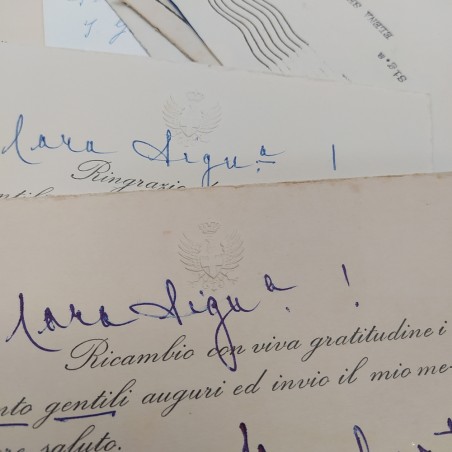 SIG.a
ELENA
Cara Sigu.a !
Ringrazio
Cara Sigu.a !
Ricambio con viva gratitudine i
nto gentili auguri ed invio il mio me-
re saluto.